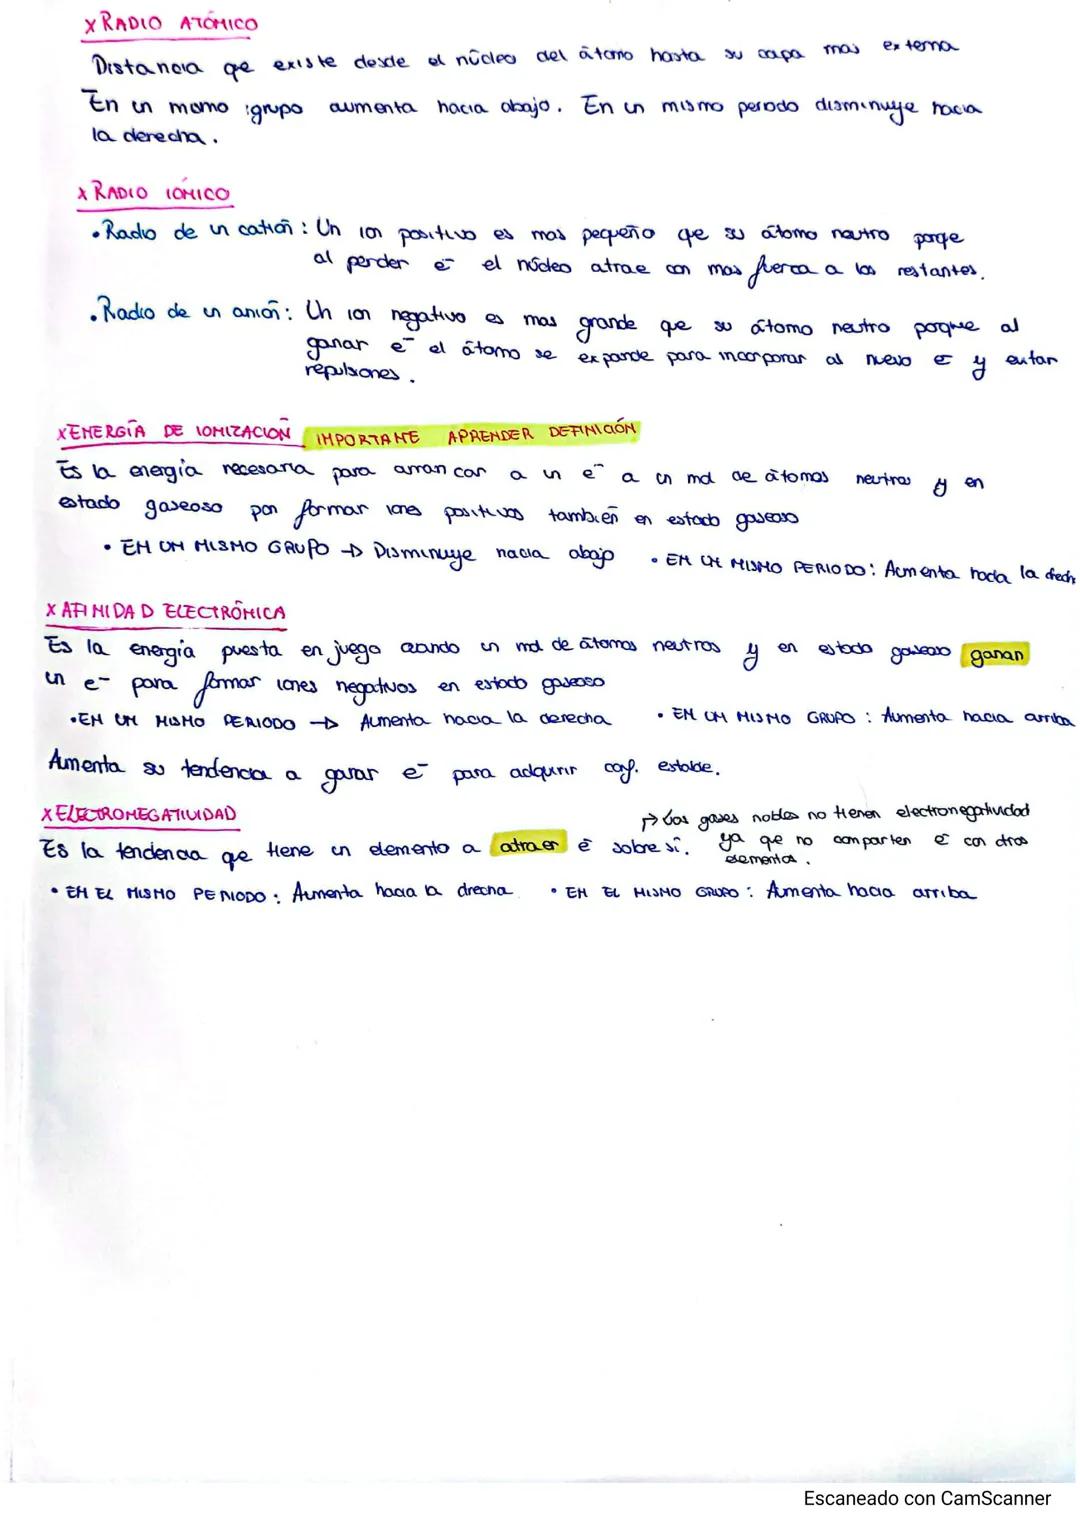 x RADIO ATÓMICO
Distancia qe existe desde el núcleo del átomo hasta su capa mas externa
En un mismo grupo aumenta hacia abajo. En un mismo periodo disminuye hacia
la derecha.
x RADIO IÓNICO
• Radio de un catión: Un ion positivo es mas pequeño qe su átomo neutro porqe
al perder e- el núcleo atrae con mas fuerza a los restantes.
• Radio de un anión: Un ion negativo es mas grande que su átomo neutro porque al
ganar e- el átomo se expande para incorporar al nuevo e- y evitar
repulsiones.
x ENERGÍA DE IONIZACIÓN IMPORTANTE APRENDER DEFINICIÓN
Es la energía necesaria para arrancar a un e- a un mol de átomos neutros y en
estado gaseoso para formar iones positivos también en estado gaseoso
• EN UN MISMO GRUPO → Disminuye hacia abajo • EN UN MISMO PERIODO: Aumenta hacia la drech
x AFINIDAD ELECTRÓNICA
Es la energía puesta en juego cuando un mol de átomos neutros y en estado gaseoso ganan
un e- para formar iones negativos en estado gaseoso
• EN UN MISMO PERIODO → Aumenta hacia la derecha • EN UN MISMO GRUPO: Aumenta hacia arriba
Aumenta su tendencia a ganar e- para adquirir conf. estable.
x ELECTRONEGATIVIDAD
Es la tendencia qe tiene un elemento a atraer e- sobre sí.
→ Los gases nobles no tienen electronegatividad
ya qe no comparten e- con otros
elementos.
• EN EL MISMO PERIODO: Aumenta hacia la drecha • EN EL MISMO GRUPO: Aumenta hacia arriba
Escaneado con CamScanner